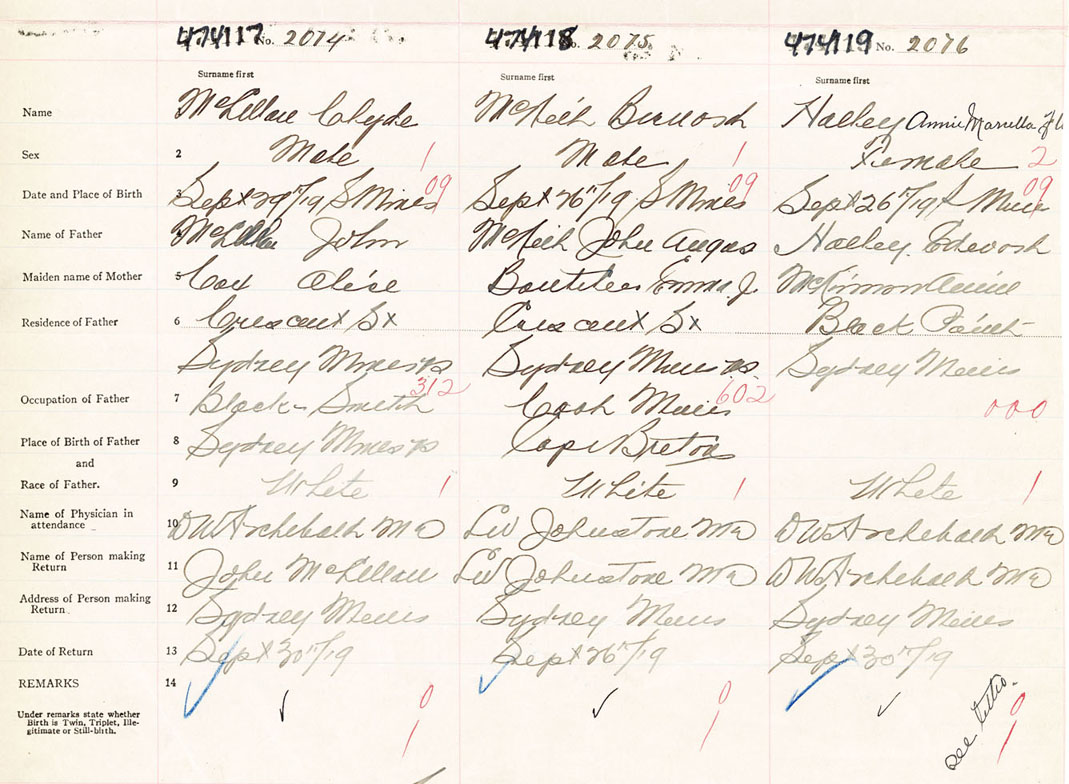 474117 No. 2074 474118 No. 2075 474119 No. 2076
Surname first Surname first Surname first
Name McLellan Clyde McKeith Halley Annie Marcella
Sex 2 Male 1 Male 1 Female 2
Date and Place of Birth 3 Sept 29"/19 S Mines 09 Sept 26"/19 S Mines 09 Sept 26"/19 S Mines 09
Name of Father 4 McLellan John McKeith John Angus Halley
Maiden name of Mother 5 Cox Alice Boutilier Emma J. McKinnon Annie
Residence of Father 6 Crescent St Crescent St Black Point
Sydney Mines NS Sydney Mines NS Sydney Mines
Occupation of Father 7 Black-Smith 312 Coal Miner 602 000
Place of Birth of Father 8 Sydney Mines NS Cape Breton
and
Race of Father. 9 White 1 White 1 White 1
Name of Physician in
attendance 10 DW Archibald MD LW Johnstone MD DW Archibald MD
Name of Person making
Return 11 John McLellan LW Johnstone MD DW Archibald MD
Address of Person making
Return 12 Sydney Mines Sydney Mines Sydney Mines
Date of Return 13 Sept 30"/19 Sept 26"/19 Sept 30"/19
REMARKS 14 0 0 0
Under remarks state whether
Birth is Twin, Triplet, Ille-
gitimate or Still-blith. 1 1 see 1